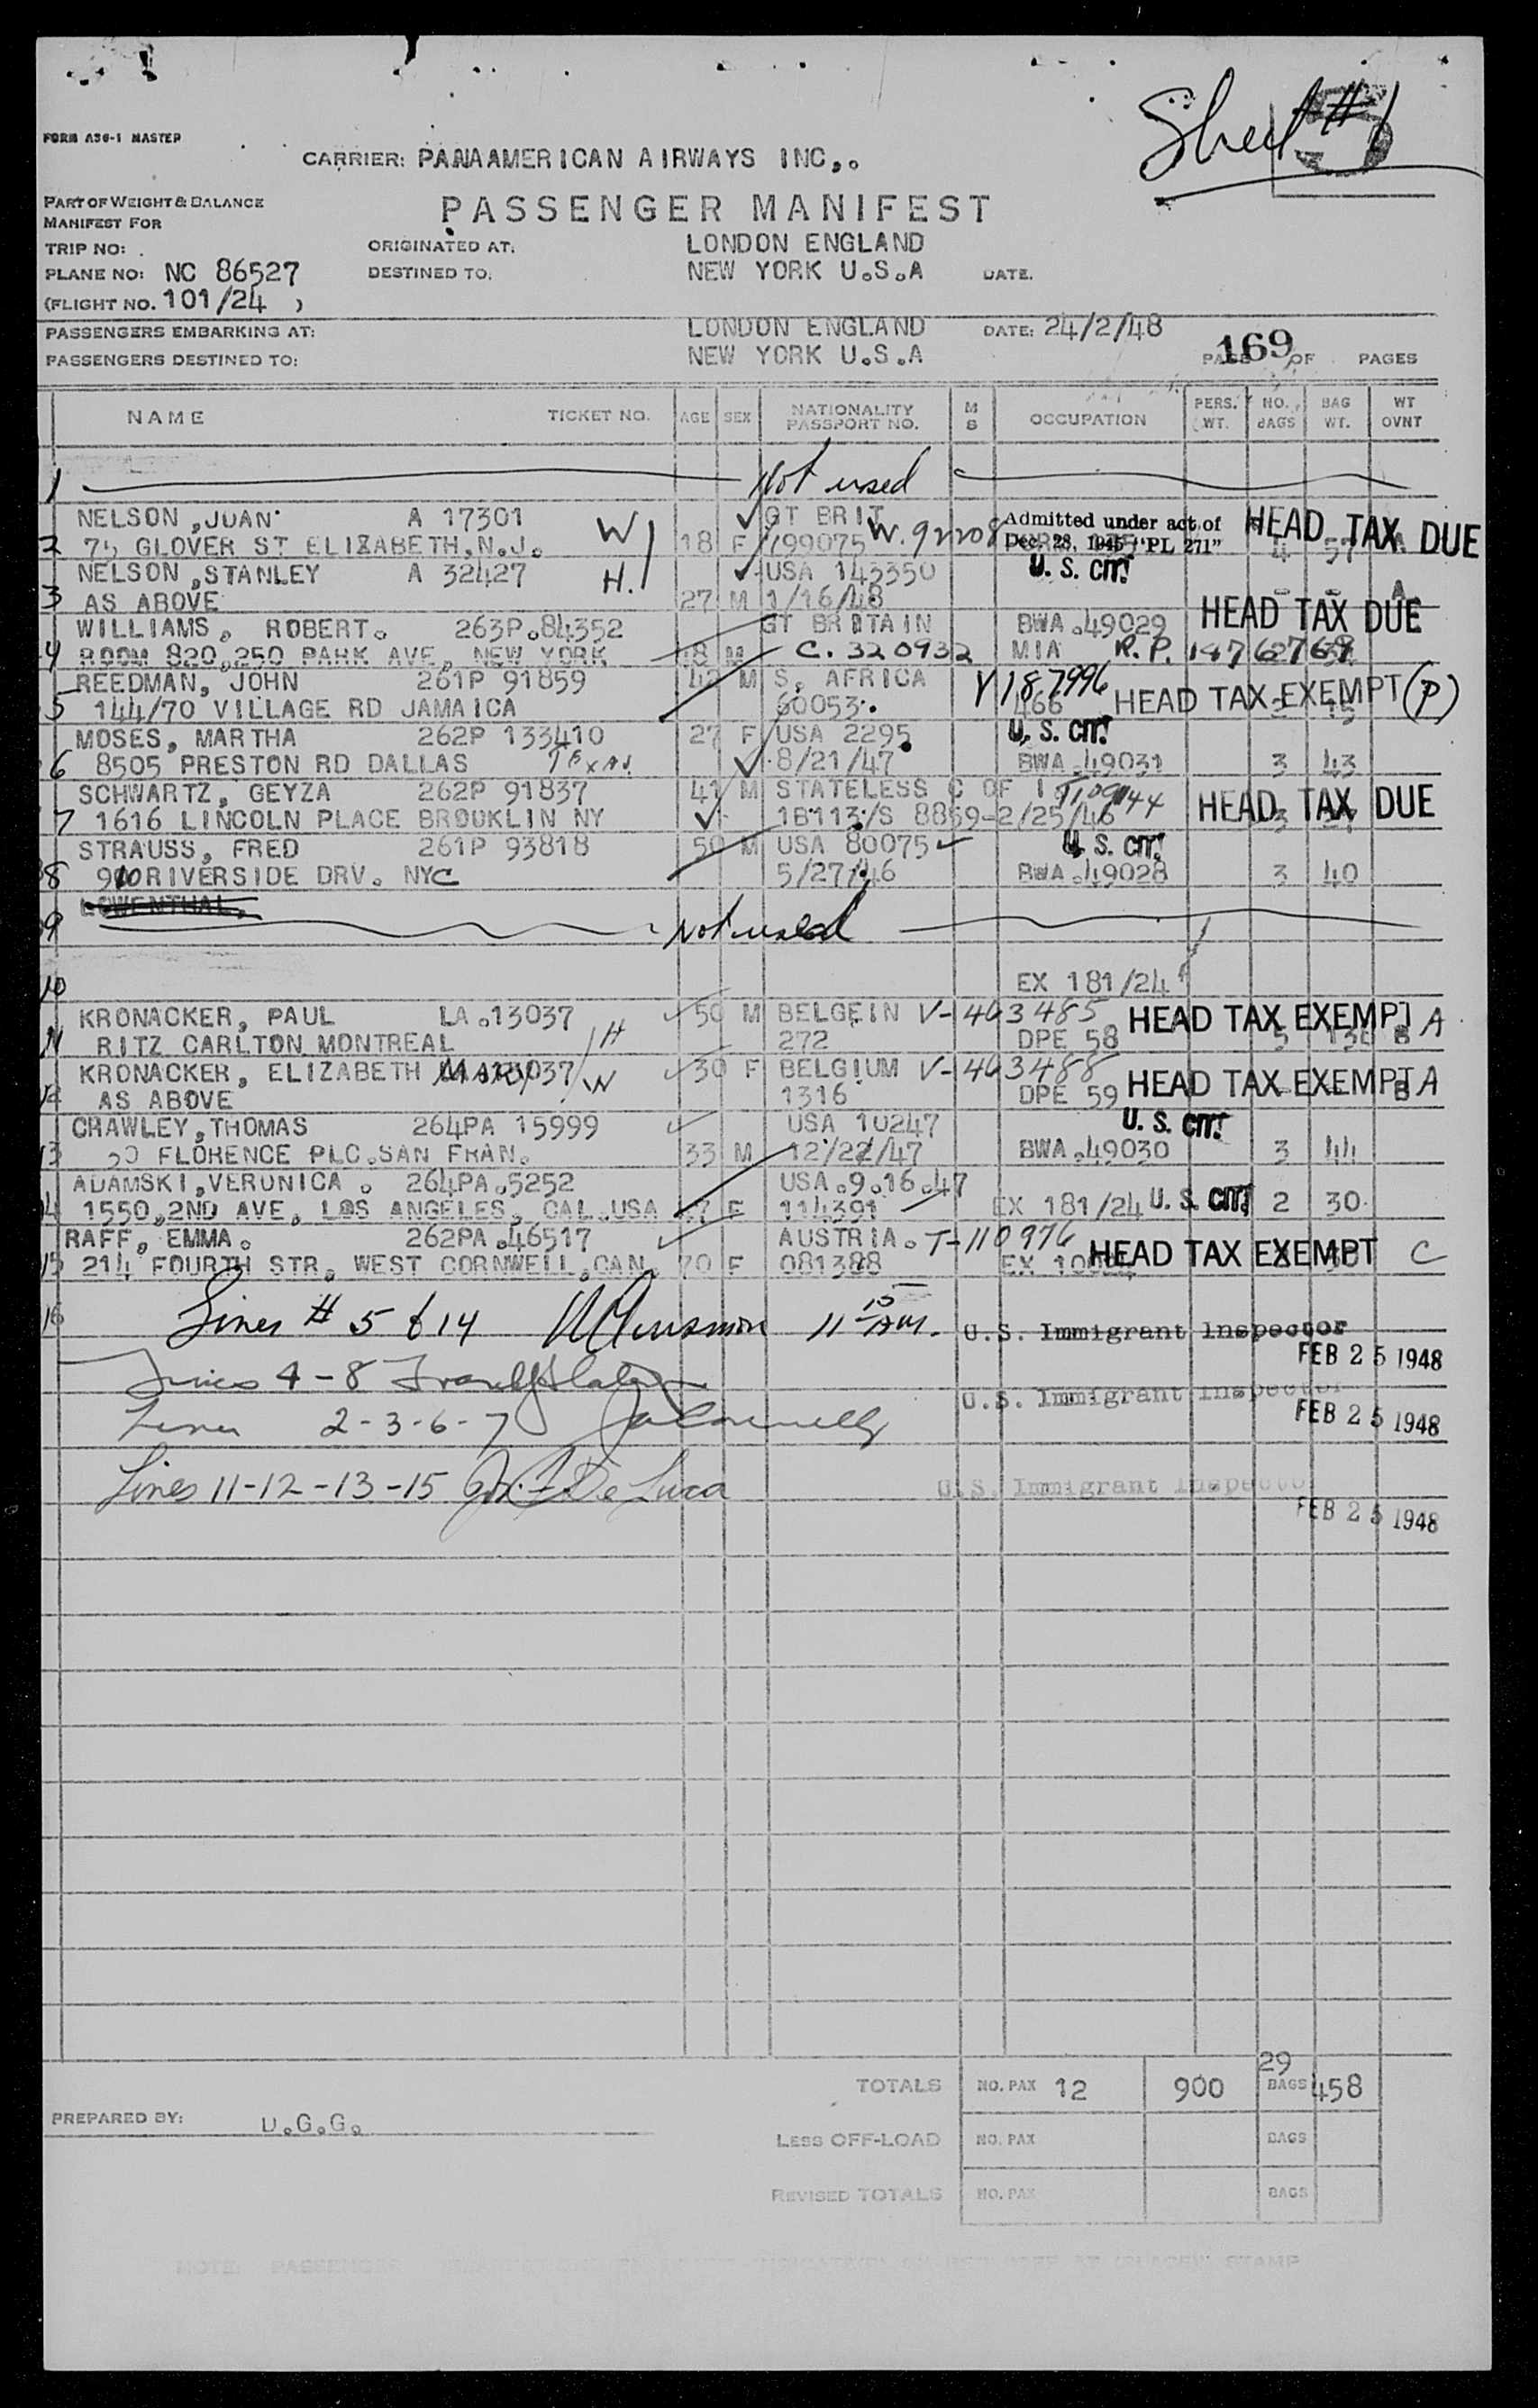 Sheet #1
FORM A36-1 MASTER
CARRIER: PANAAMERICAN AIRWAYS INC,.
PART OF WEIGHT & BALANCE
MANIFEST FOR
PASSENGER MANIFEST
TRIP NO: ORIGINATED AT: LONDON ENGLAND
PLANE NO: NC 86527 DESTINED TO: NEW YORK U.S.A DATE.
(FLIGHT NO. 101/24 )
PASSENGERS EMBARKING AT: LONDON ENGLAND DATE: 24/2/48
PASSENGERS DESTINED TO: NEW YORK U.S.A PAGE 169 OF PAGES
NAME TICKET NO. AGE SEX NATIONALITY PASSPORT NO. M S OCCUPATION PERS. WT. NO. BAGS BAG WT. WT OVNT
1 Not used
NELSON, JUAN A 17301 W GT BRIT W.92208 Admitted under act of HEAD TAX DUE
2 75 GLOVER ST ELIZABETH, N.J. 18 F 799075 Dec. 28, 1945 "PL 271" 4 57
NELSON, STANLEY A 32427 H. USA 143350 U.S. CIT.
3 AS ABOVE 27 M 1/16/48 A
WILLIAMS. ROBERT. 263P.84352 GT BRITAIN BWA.49029 HEAD TAX DUE
4 ROOM 820,250 PARK AVE, NEW YORK M C. 320932 MIA R.P. 1476276
REEDMAN, JOHN 261P 91859 42 M S. AFRICA V187996 HEAD TAX EXEMPT (P)
5 144/70 VILLAGE RD JAMAICA 60053. 466
MOSES, MARTHA 262P 133410 27 F USA 2295 U.S. CIT.
6 8505 PRESTON RD DALLAS TEXAS 8/21/47 BWA.49031 3 43
SCHWARTZ, GEYZA 262P 91837 41 M STATELESS C OF I HEAD TAX DUE
7 1616 LINCOLN PLACE BROOKLIN NY 1B113/S 8859-2/25/46 3
STRAUSS, FRED 261P 93818 50 M USA 80075 U.S. CIT.
8 900 RIVERSIDE DRV. NYC 5/27/46 BWA.49028 3 40
LOWENTHAL,
9 Not used
10 EX 181/24
KRONACKER, PAUL LA.13037 50 M BELGEIN V-463485 HEAD TAX EXEMPT A
11 RITZ CARLTON MONTREAL H 272 DPE 58
KRONACKER, ELIZABETH 30 F BELGIUM V-463488 HEAD TAX EXEMPT A
12 AS ABOVE W 1316 DPE 59
CRAWLEY, THOMAS 264PA 15999 USA 10247 U.S. CIT.
13 FLORENCE PLC.SAN FRAN. 33 M 12/22/47 BWA.49030 3 44
ADAMSKI, VERONICA . 264PA.5252 USA.9.16.47
14 1550,2ND AVE, LOS ANGELES, CAL.USA F 114391 EX 181/24 U.S. CIT. 2 30
RAFF, EMMA. 262PA.46517 AUSTRIA. T-110976
15 214 FOURTH STR, WEST CORNWELL,CAN. 70 F 081388 HEAD TAX EXEMPT C
16 Lines # 5 & 14 11 15 AM. U.S. Immigrant Inspector
FEB 25 1948
Lines 4-8 U.S. Immigrant Inspector
FEB 25 1948
Lines 2-3-6-7
Lines 11-12-13-15 De Luca U.S. Immigrant Inspector
FEB 25 1948
TOTALS NO. PAX 12 900 29 BAGS 458
PREPARED BY: D.G.G.
LESS OFF-LOAD NO. PAX BAGS
REVISED TOTALS NO. PAX BAGS